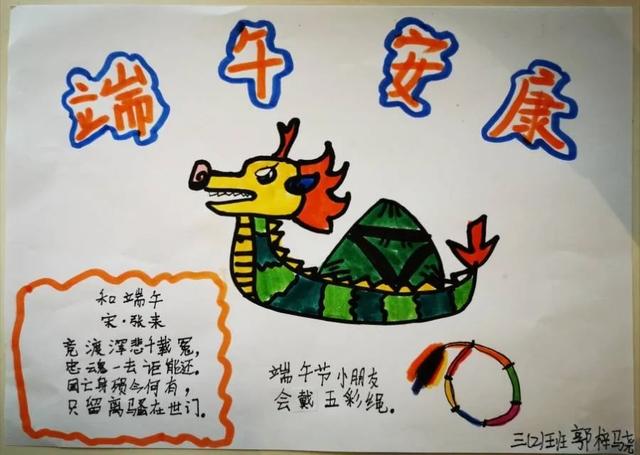 端午安康
和端午
宋·张耒
竞渡深悲千载冤,
忠魂一去讵能还。
国亡身殒今何有,
只留离骚在世门。
端午节小朋友
会戴五彩绳。
三(2)班 郭梓骁